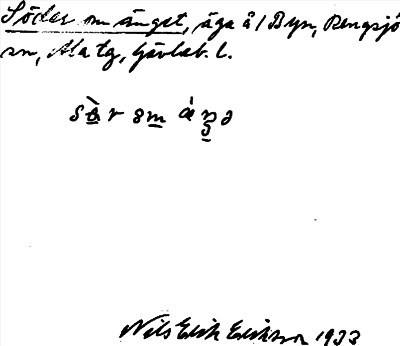 Söder om änget, äga å 1 Byn, Rengsjö
sn, Ala tg, Gävleb. l.
Nils Erik Erikson 1933